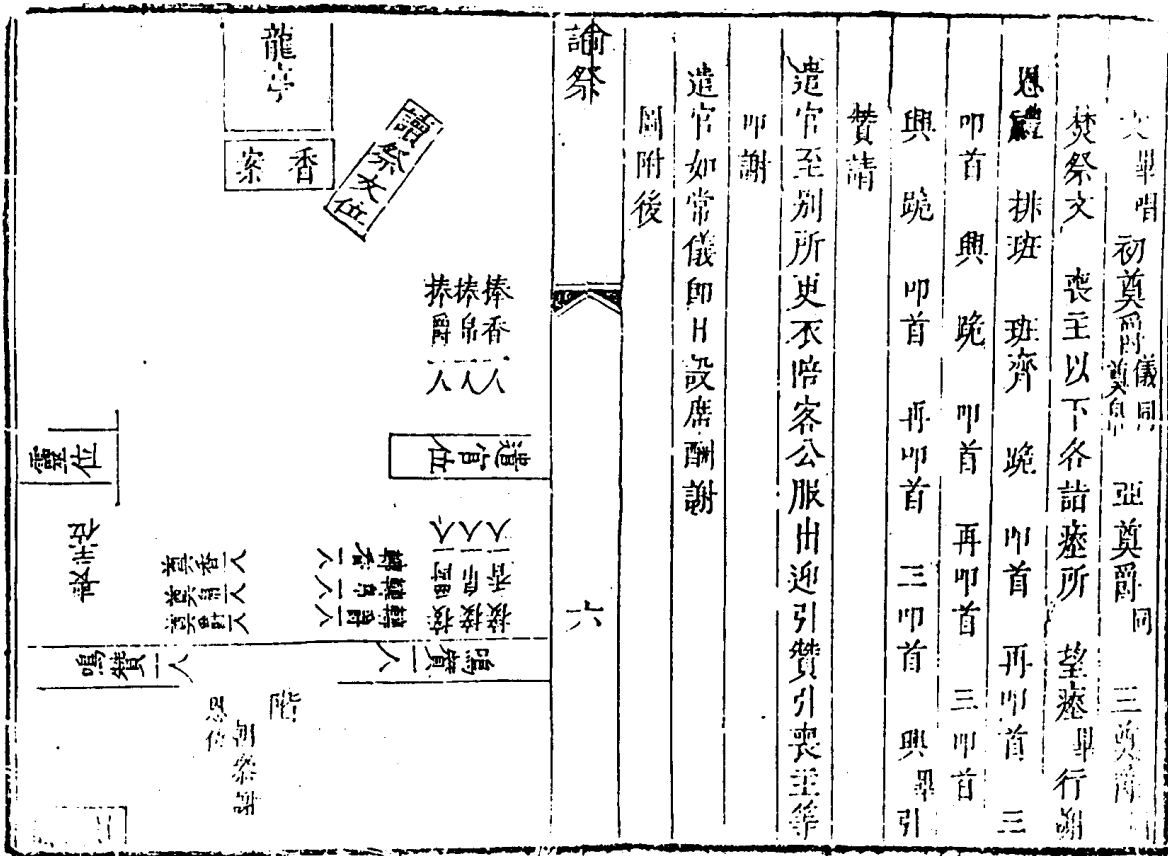 文畢唱 初奠爵儀同奠帛 亞奠爵同 三奠爵同
焚祭文 喪主以下各詣瘞所 望瘞畢行謝
恩禮 排班 班齊 跪 叩首 再叩首 三
叩首 興 跪 叩首 再叩首 三叩首
興 跪 叩首 再叩首 三叩首 興畢引
贊請
遣官至别所更衣陪客公服出迎引贊引喪主等
叩謝
遣官如常儀即日設席酬謝
圖附後
諭祭
六
龍亭
香案
讀祭文位
捧香一人
捧帛一人
捧爵一人
遣官位
靈位
接香一人
接帛一人
接爵一人
轉香一人
轉帛一人
轉爵一人
奠香一人
奠帛一人
奠爵一人
鳴贊一人
鳴贊一人
階